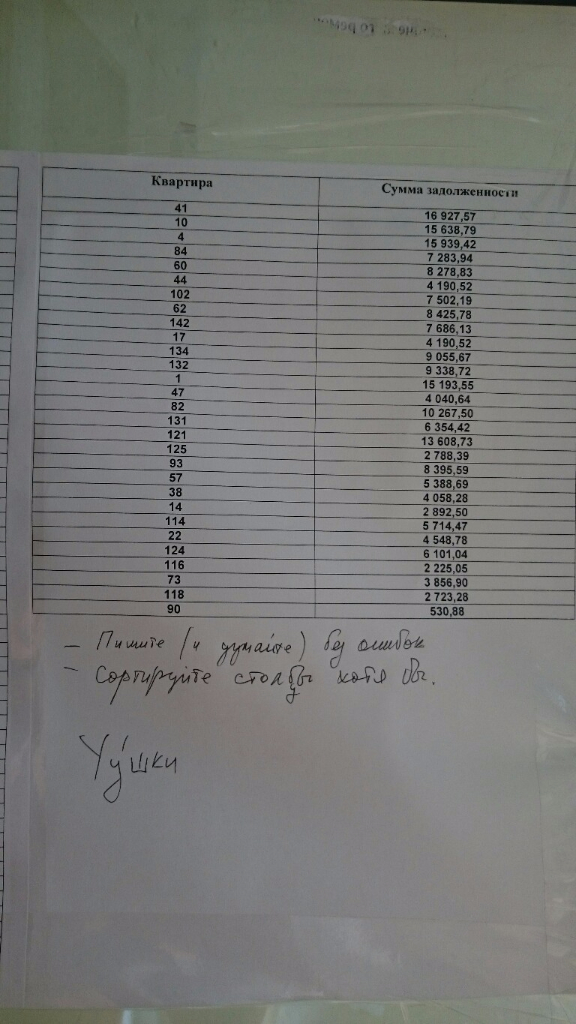 Квартира Сумма задолженности
41 16 927,57
10 15 638,79
4 15 939,42
84 7 283,94
60 8 278,83
44 4 190,52
102 7 502,19
62 8 425,78
142 7 686,13
17 4 190,52
134 9 055,67
132 9 338,72
1 15 193,55
47 4 040,64
82 10 267,50
131 6 354,42
121 13 608,73
125 2 788,39
93 8 395,59
57 5 388,69
38 4 058,28
14 2 892,50
114 5 714,47
22 4 548,78
124 6 101,04
116 2 225,05
73 3 856,90
118 2 723,28
90 530,88
– Пишите (и думайте) без ошибок
– Сортируйте столбцы хотя бы.